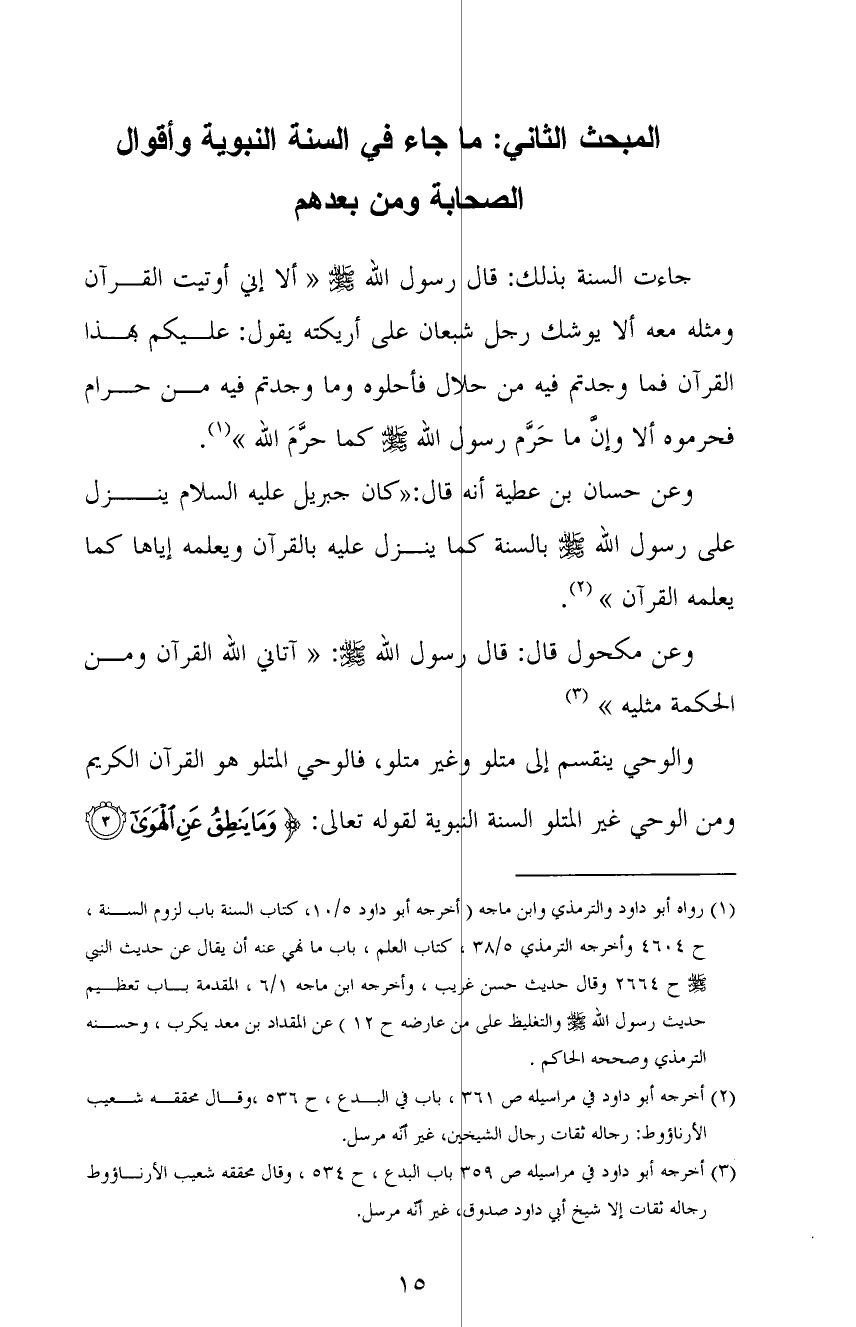 المبحث الثاني: ما جاء في السنة النبوية وأقوال
الصحابة ومن بعدهم
جاءت السنة بذلك: قال رسول الله ﷺ « ألا إني أوتيت القـــرآن
ومثله معه ألا يوشك رجل شبعان على أريكته يقول: علـــيكم بهـــذا
القرآن فما وجدتم فيه من حلال فأحلوه وما وجدتم فيه مـــن حـــرام
فحرموه ألا وإنَّ ما حَرَّم رسول الله ﷺ كما حرَّمَ الله »(١).
وعن حسان بن عطية أنه قال:«كان جبريل عليه السلام ينـــزل
على رسول الله ﷺ بالسنة كما ينـزل عليه بالقرآن ويعلمه إياها كما
يعلمه القرآن »(٢).
وعن مكحول قال: قال رسول الله ﷺ: « آتاني الله القرآن ومـــن
الحكمة مثليه »(٣)
والوحي ينقسم إلى متلو وغير متلو، فالوحي المتلو هو القرآن الكريم
ومن الوحي غير المتلو السنة النبوية لقوله تعالى: ﴿ وَمَا يَنطِقُ عَنِ ٱلْهَوَىٰٓ ٣
(١) رواه أبو داود والترمذي وابن ماجه ( أخرجه أبو داود ١٠/٥، كتاب السنة باب لزوم الســـنة ،
ح ٤٦٠٤ وأخرجه الترمذي ٣٨/٥ ، كتاب العلم ، باب ما نهي عنه أن يقال عن حديث النبي
ﷺ ح ٢٦٦٤ وقال حديث حسن غريب ، وأخرجه ابن ماجه ٦/١ ، المقدمة بـــاب تعظـــيم
حديث رسول الله ﷺ والتغليظ على من عارضه ح ١٢ ) عن المقداد بن معد يكرب ، وحســـنه
الترمذي وصححه الحاكم .
(٢) أخرجه أبو داود في مراسيله ص ٣٦١ ، باب في البـــدع ، ح ٥٣٦ ،وقـــال محققـــه شـــعيب
الأرناؤوط: رجاله ثقات رجال الشيخين، غير أنّه مرسل.
(٣) أخرجه أبو داود في مراسيله ص ٣٥٩ باب البدع ، ح ٥٣٤ ، وقال محققه شعيب الأرنـــاؤوط
رجاله ثقات إلا شيخ أبي داود صدوق، غير أنّه مرسل.
١٥